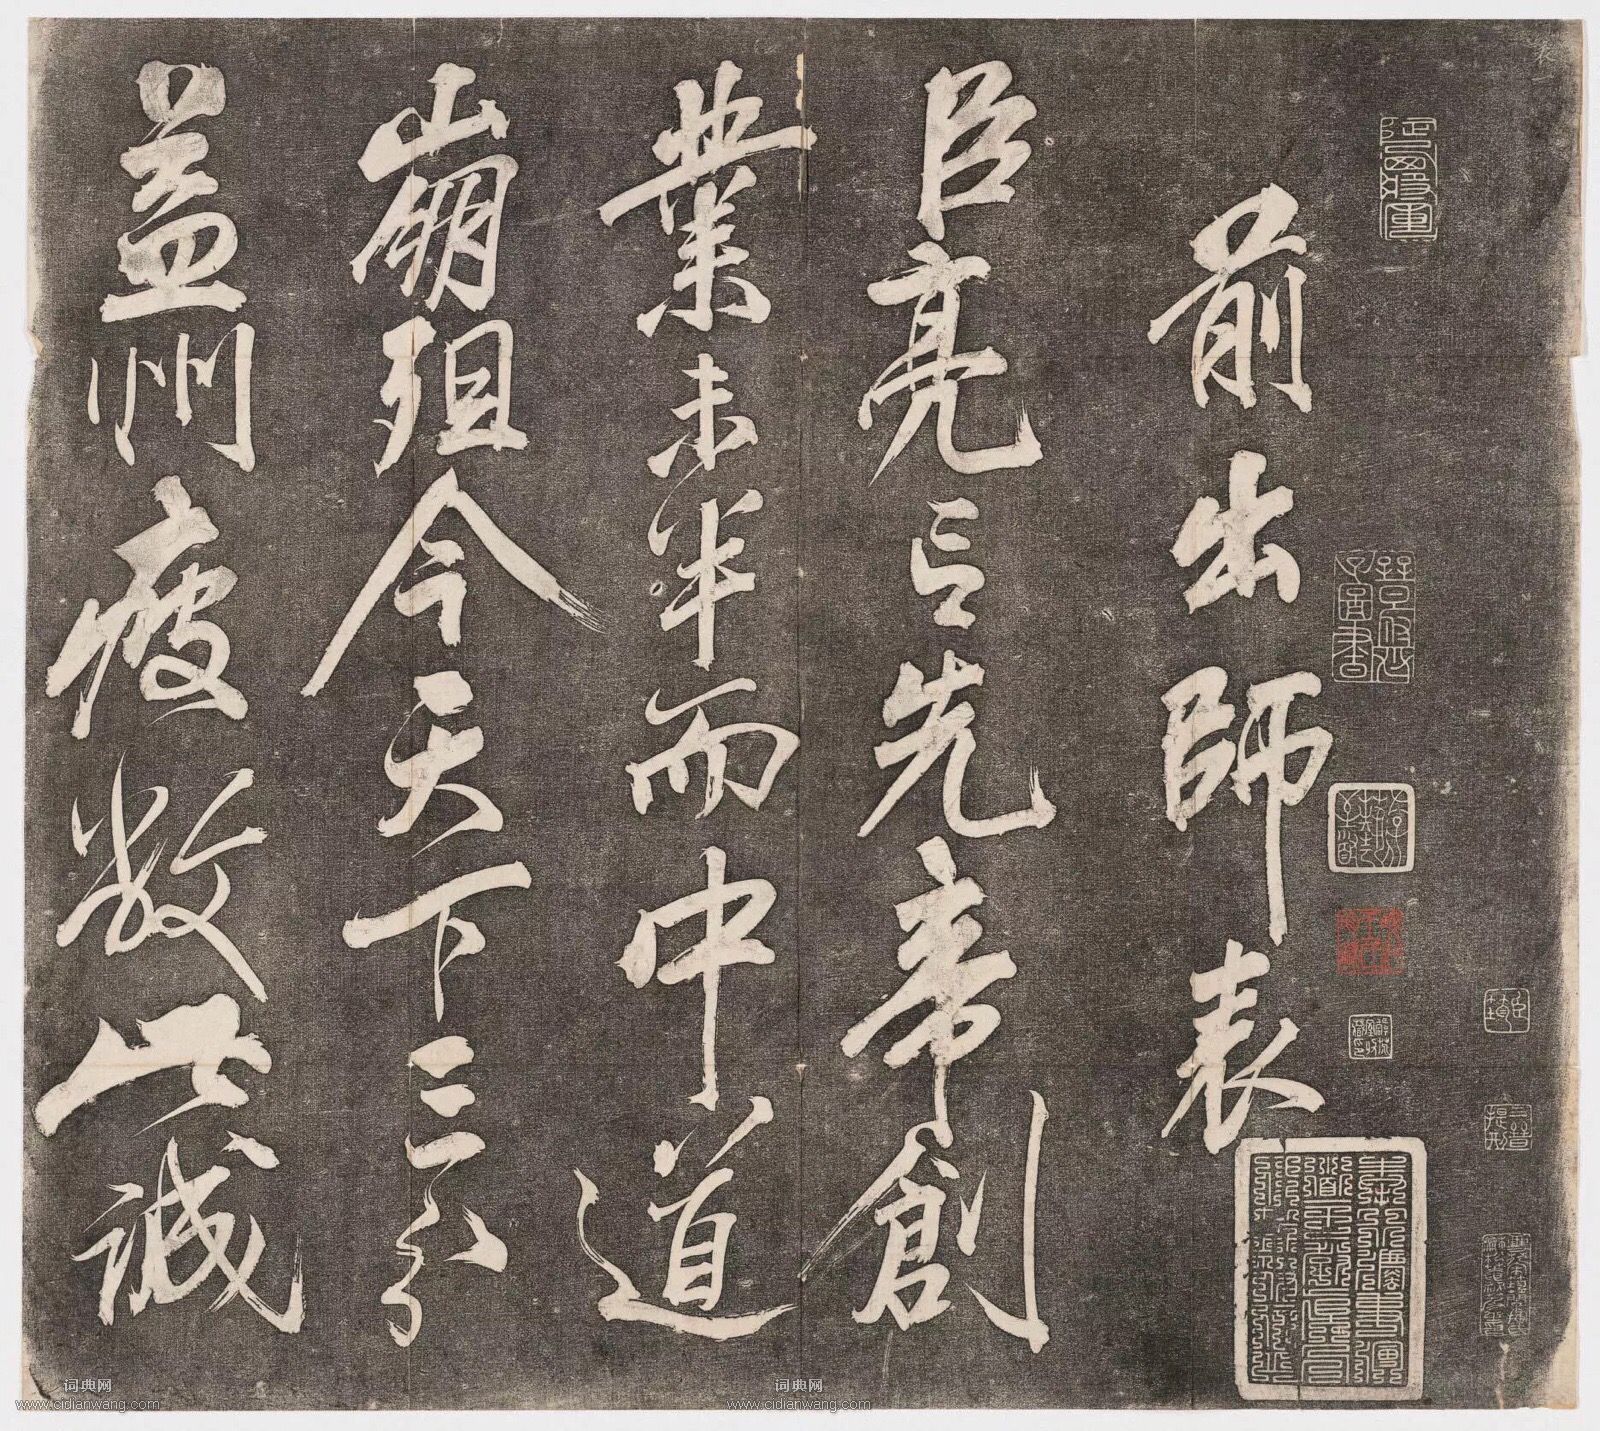 前出師表
臣亮言先帝創
業未半而中道
崩殂今天下三分
益州疲敝此誠
表一
词典网
www.cidianwang.com
词典网
www.cidianwang.com